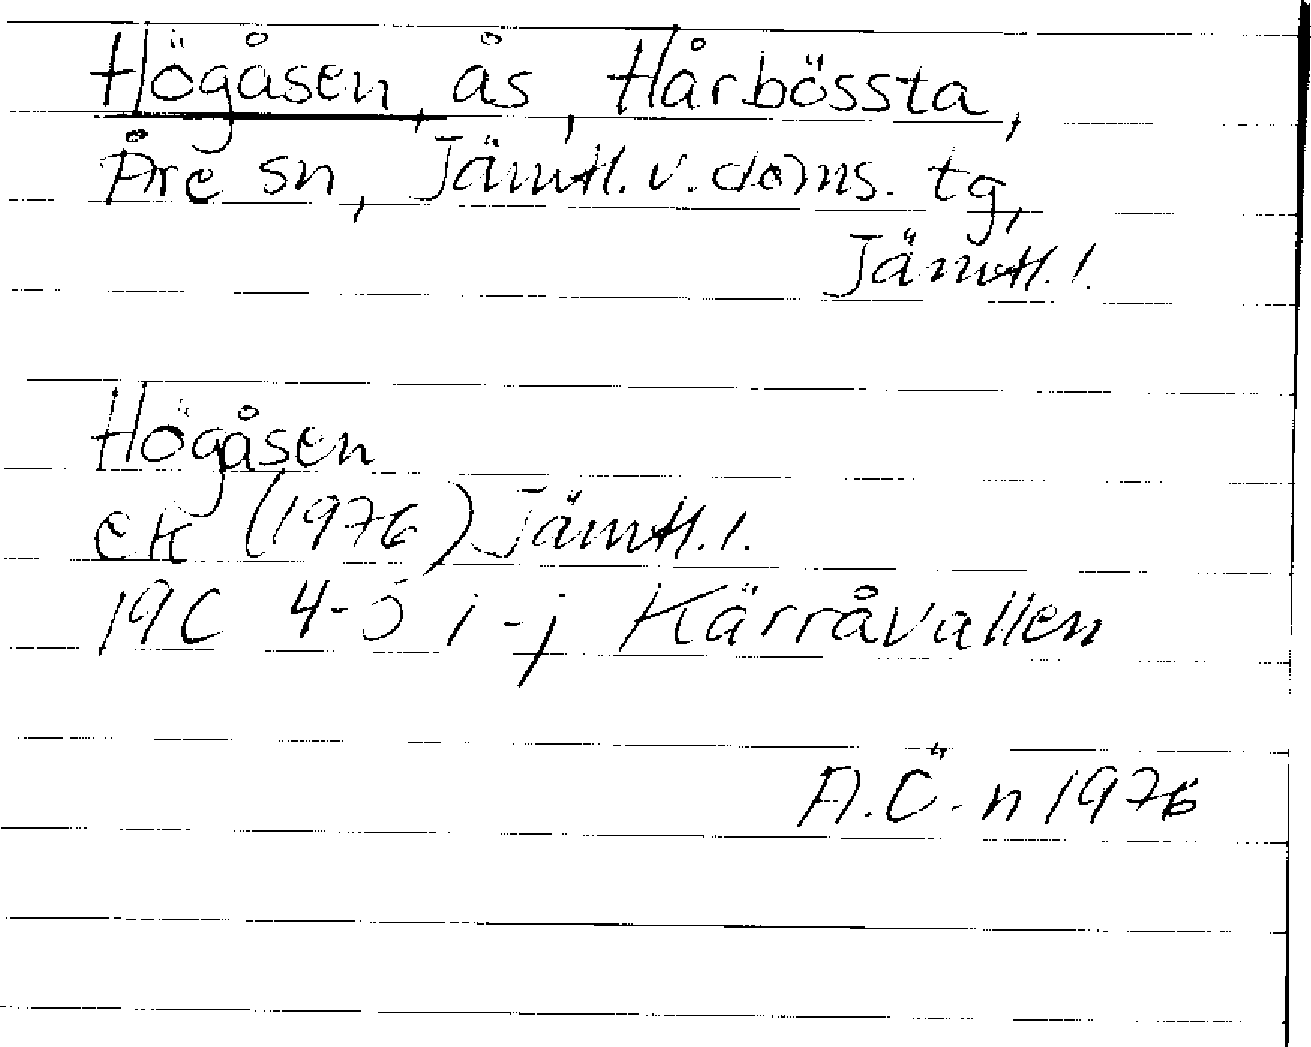 Högåsen, ås, Hårbössta,
Åre sn, Jämtl. v. doms. tg,
Jämtl. l.
Högåsen
ek (1976) Jämtl. l.
19C 4-5 i-j Kärråvallen
A.Ö-n 1976